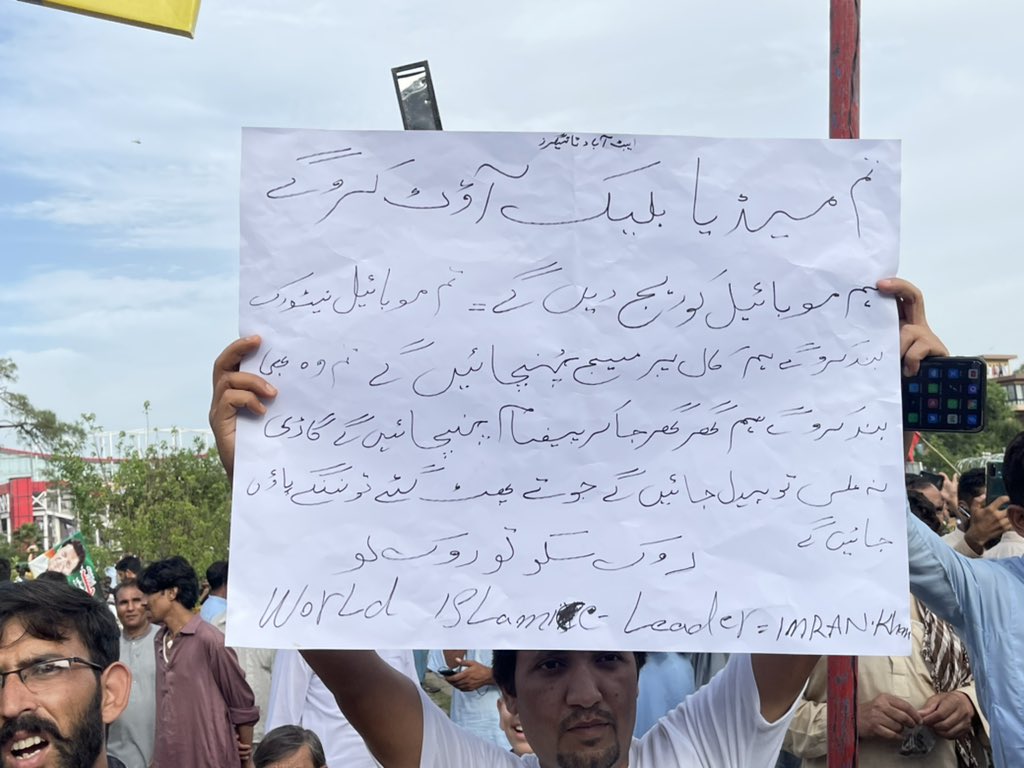 ایبٹ آباد ٹائیگرز
تم میڈیا بلیک آؤٹ کرو گے
ہم موبائیل کوریج دیں گے = تم موبائیل نیٹورک
بند کرو گے ہم کال پر میسج پہنچائیں گے تم وہ بھی
بند کرو گے ہم گھر گھر جا کر پیغام پہنچائیں گے گاڑی
نہ ملی تو پیدل جائیں گے جوتے پھٹ گئے تو ننگے پاؤں
جائیں گے
روک سکو تو روک لو
World ISLamic- Leader = IMRAN.Khan